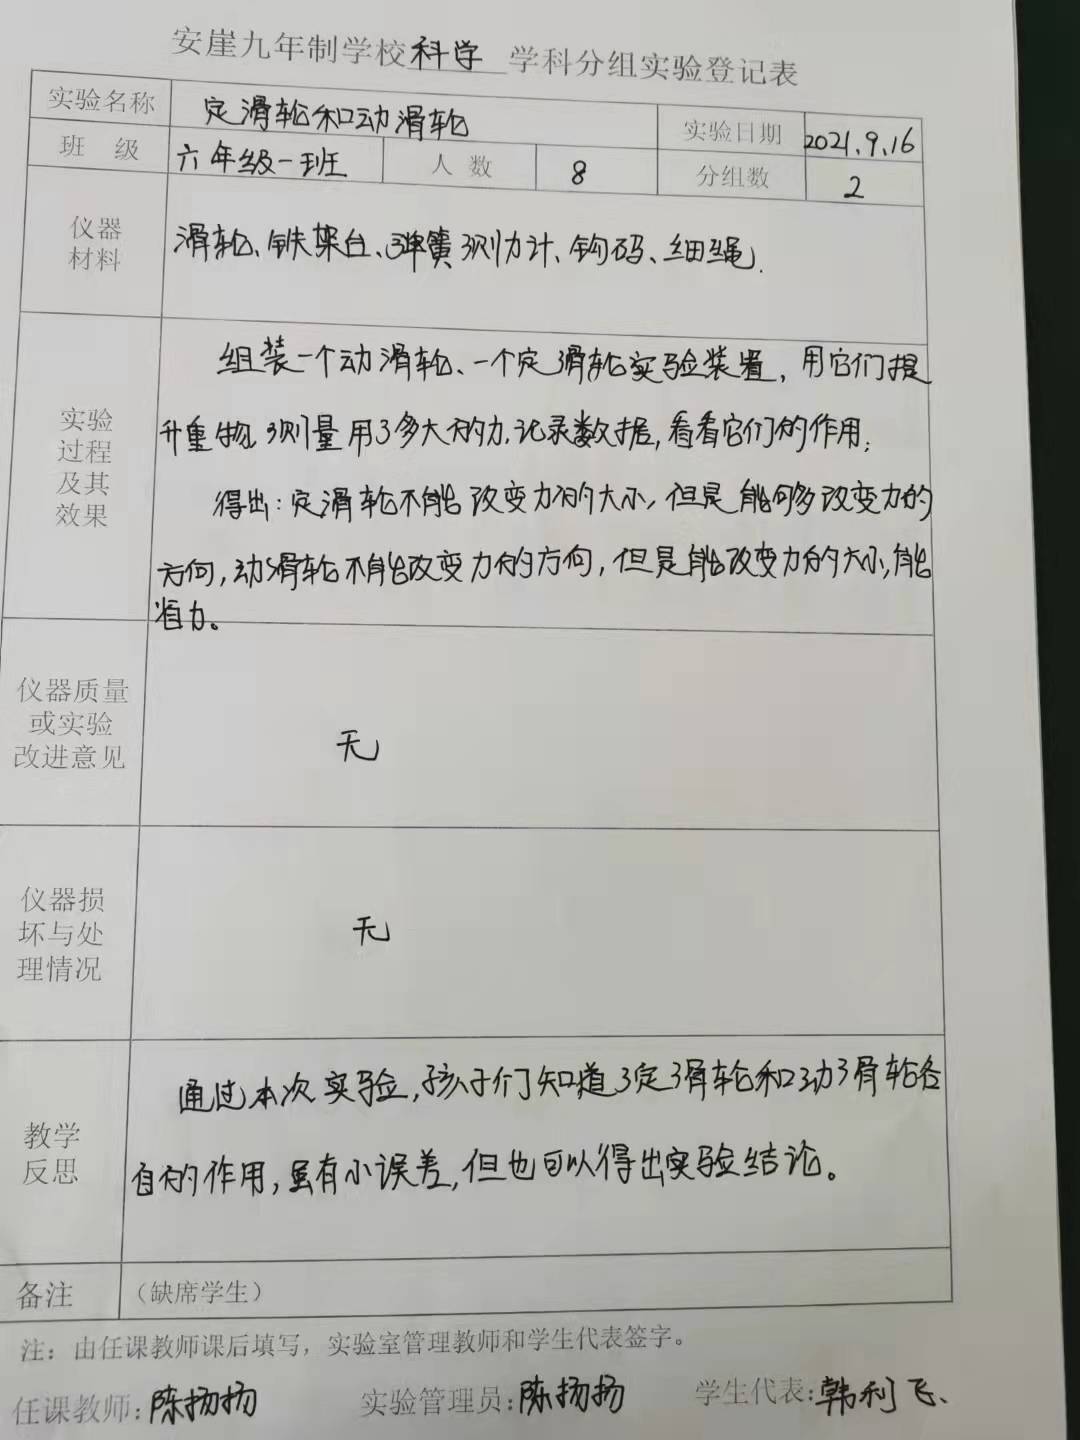 安崖九年制学校科学 学科分组实验登记表
实验名称 定滑轮和动滑轮 实验日期 2021.9.16
班 级 六年级一班 人 数 8 分组数 2
仪器
材料
滑轮、铁架台、弹簧测力计、钩码、细绳.
实验
过程
及其
效果
组装一个动滑轮、一个定滑轮实验装置，用它们提
升重物，测量用了多大的力，记录数据，看看它们的作用；
得出：定滑轮不能改变力的大小，但是能够多改变力的
方向，动滑轮不能改变力的方向，但是能改变力的大小，能
省力。
仪器质量
或实验
改进意见
无
仪器损
坏与处
理情况
无
教学
反思
通过本次实验，孩子们知道了定滑轮和动滑轮各
自的作用，虽有小误差，但也可以得出实验结论。
备注 （缺席学生）
注：由任课教师课后填写，实验室管理教师和学生代表签字。
任课教师：陈扬扬 实验管理员：陈扬扬 学生代表：韩利飞、